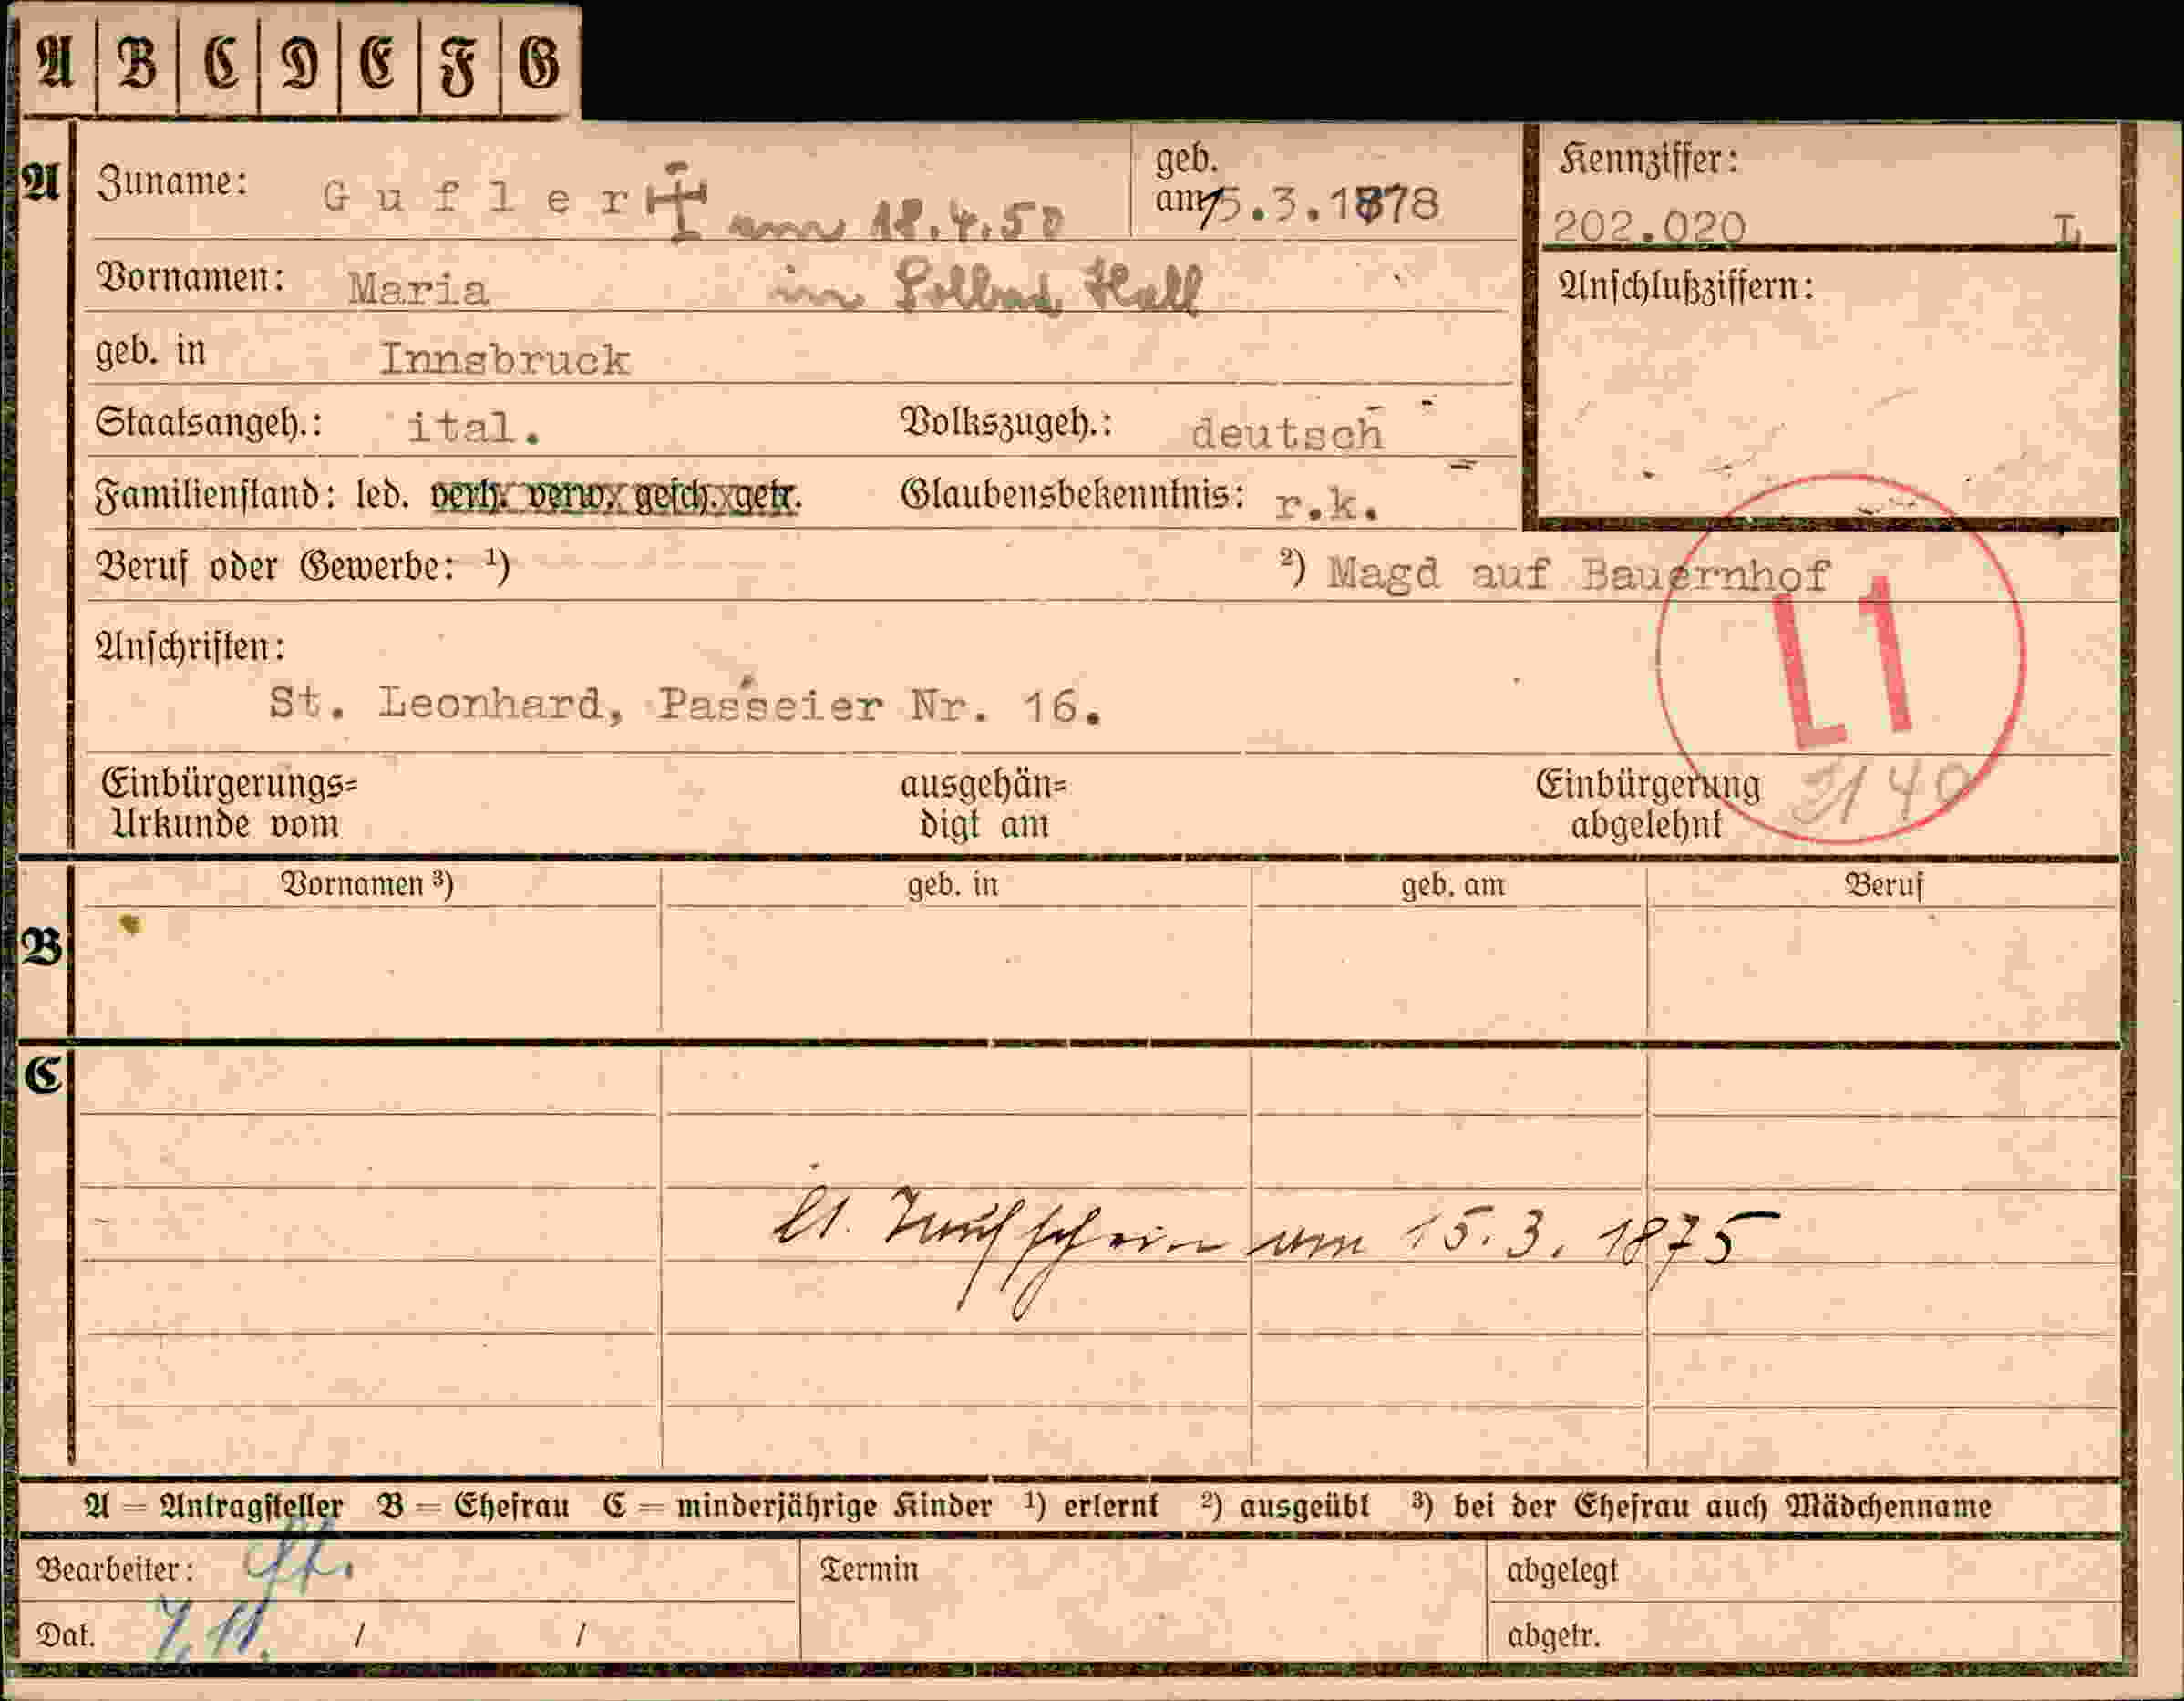 A B C D E F G
A Zuname: Gufler ‡ am 18.4.50 geb. am 15.3.1878 Kennziffer:
202.020 L
Vornamen: Maria in Solbad Hall Anschlußziffern:
geb. in Innsbruck
Staatsangeh.: ital. Volkszugeh.: deutsch
Familienstand: led. verh. verw. gesch. getr. Glaubensbekenntnis: r.k.
Beruf oder Gewerbe: ¹) ²) Magd auf Bauernhof
L1
Anschriften:
St. Leonhard, Passeier Nr. 16.
Einbürgerungs= ausgehän= Einbürgerung
Urkunde vom digt am abgelehnt
Vornamen ³) geb. in geb. am Beruf
B
C
lt. Taufschein am 15.3.1875
A = Antragsteller B = Ehefrau C = minderjährige Kinder ¹) erlernt ²) ausgeübt ³) bei der Ehefrau auch Mädchenname
Bearbeiter: Termin abgelegt
Dat. 7.11. / / abgetr.